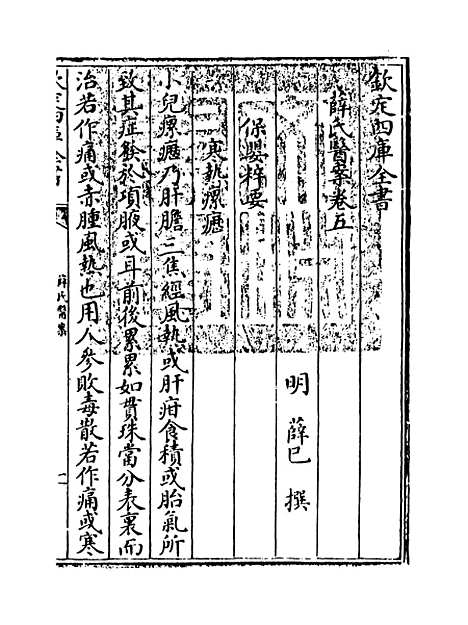 欽定四庫全書
薛氏醫案卷五
明 薛己 撰
保嬰粹要
寒熱瘰癧
小兒瘰癧乃肝膽三焦經風熱或肝疳食積或胎氣所
致其症發於項腋或耳前後累累如貫珠當分表裏而
治若作痛或赤腫風熱也用人參敗毒散若作痛或寒
薛氏醫案